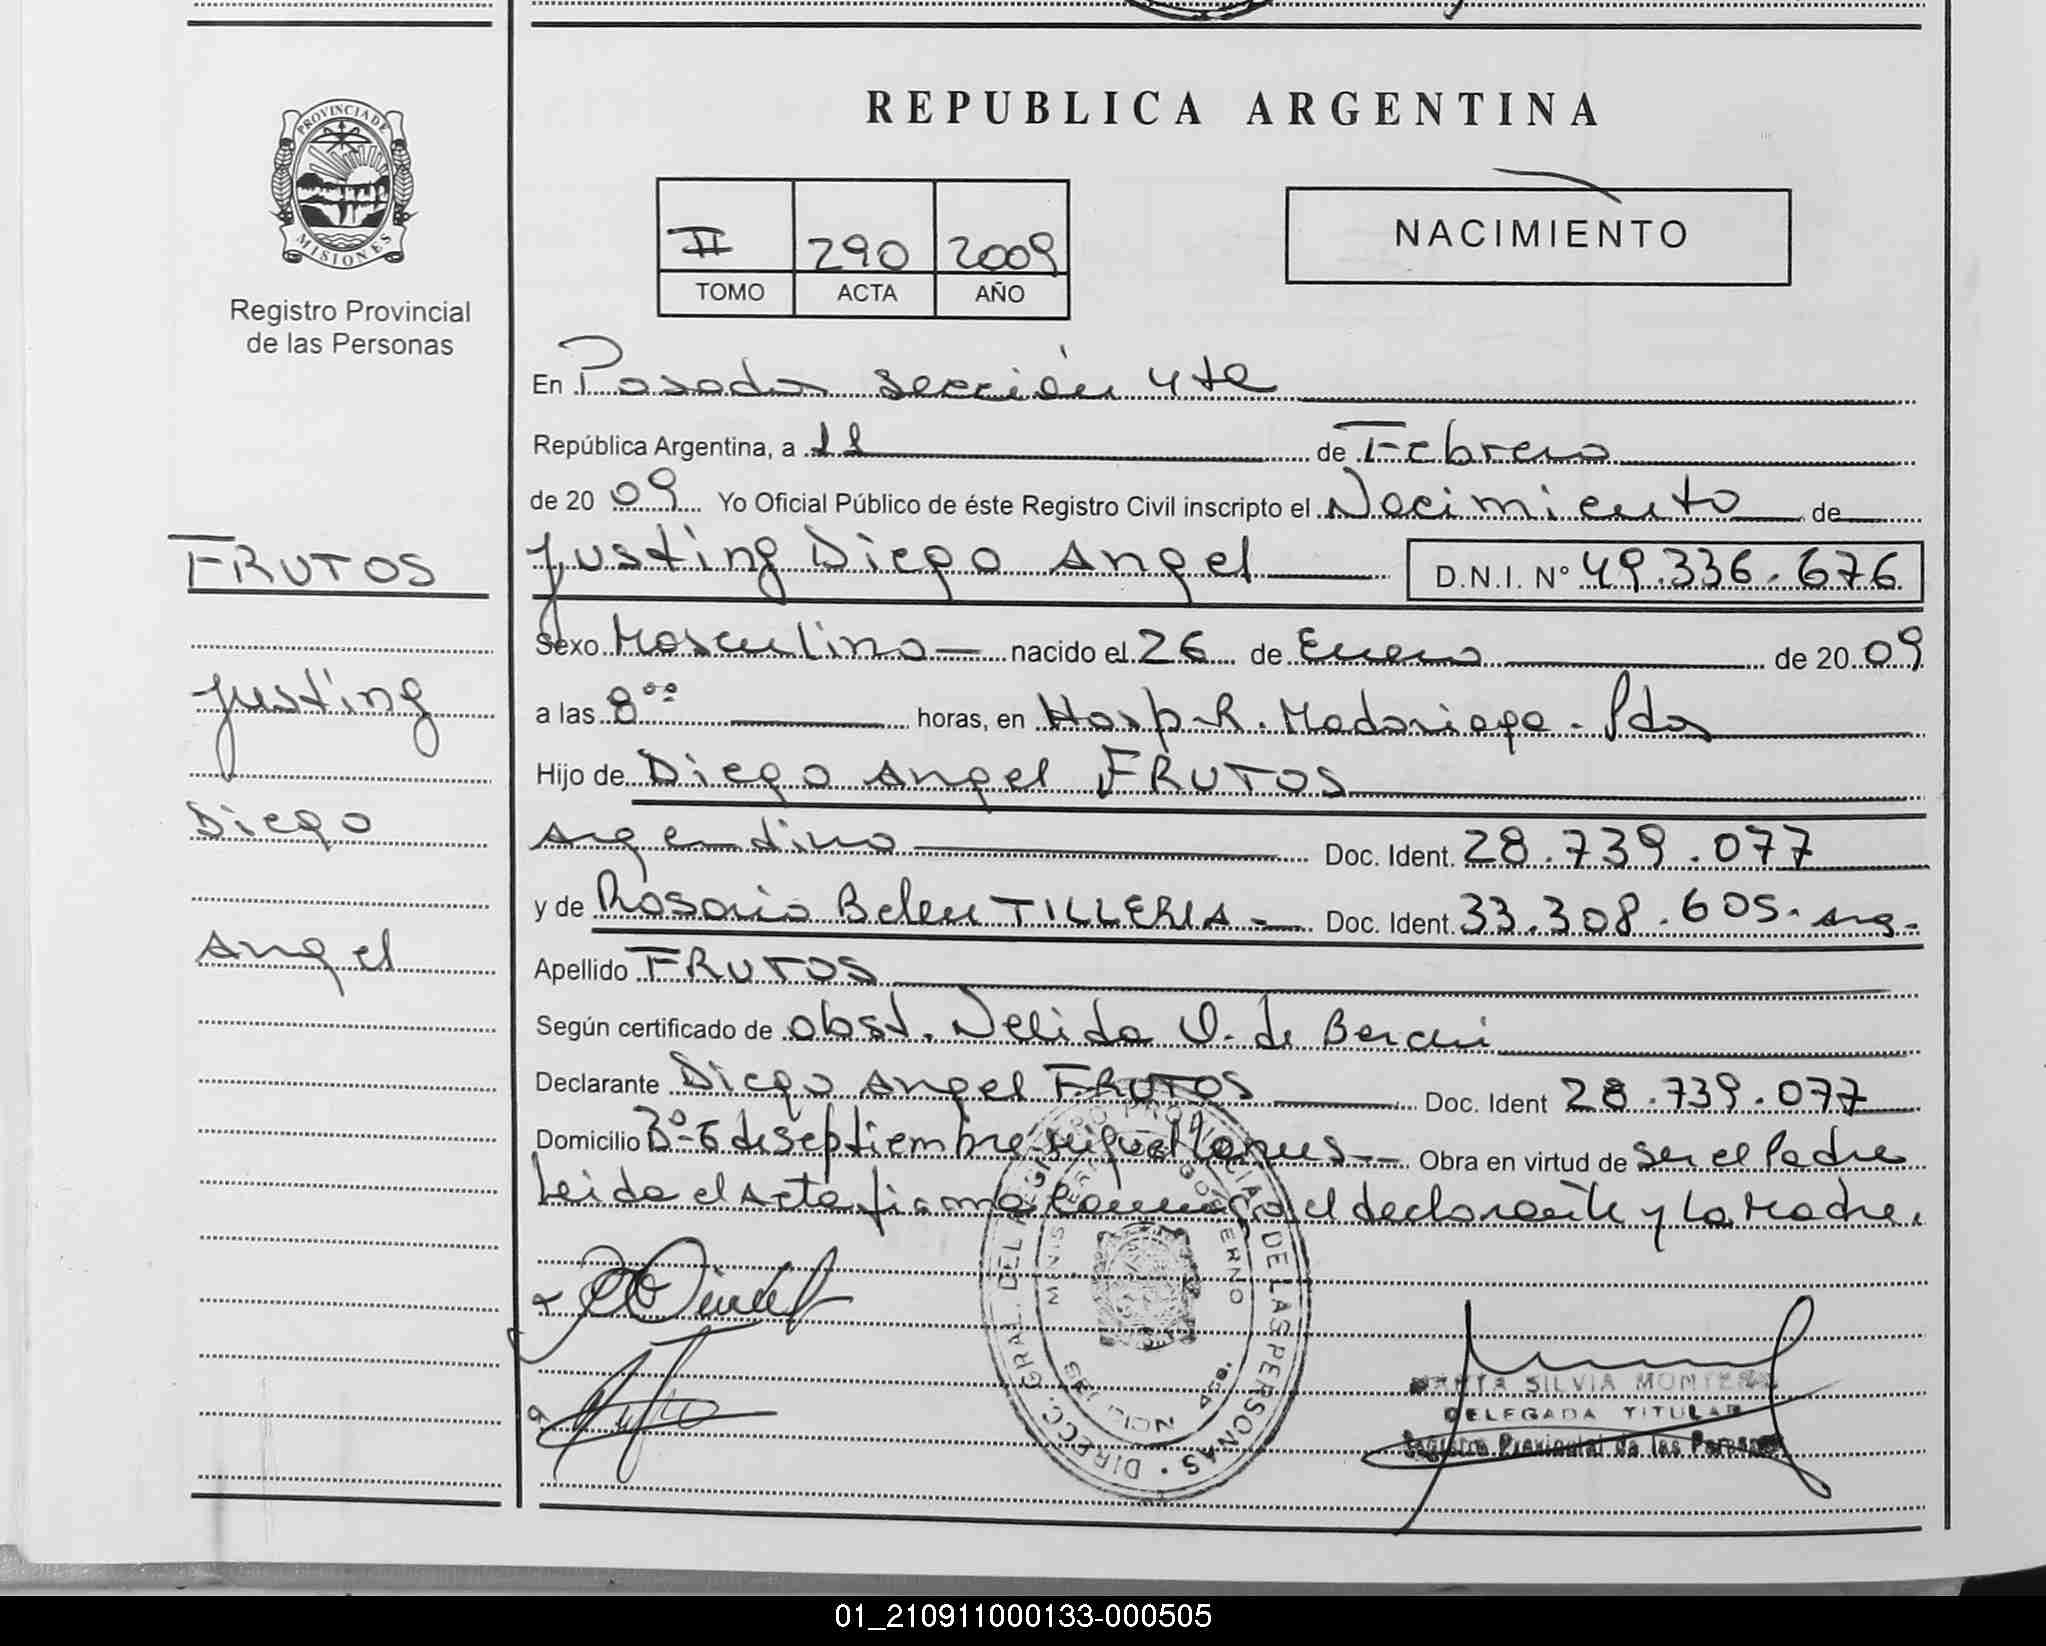 PROVINCIA DE
MISIONES
Registro Provincial
de las Personas
FRUTOS
Justing
Diego
Angel
REPUBLICA ARGENTINA
II 290 2009
TOMO ACTA AÑO
NACIMIENTO
En Posadas sección 4ta
República Argentina, a 11 de Febrero
de 20 09 Yo Oficial Público de éste Registro Civil inscripto el Nacimiento de
Justing Diego Angel D.N.I. Nº 49.336.676
Sexo Masculino nacido el 26 de Enero de 20 09
a las 8⁰⁰ horas, en Hosp. R. Madariaga - Pdas
Hijo de Diego Angel FRUTOS
Argentino Doc. Ident. 28.739.077
y de Rosario Belen TILLERIA - Doc. Ident. 33.308.605. Arg.
Apellido FRUTOS
Según certificado de obst. Nelida O. de
Declarante Diego Angel FRUTOS Doc. Ident 28.739.077
Domicilio Bº 6 de Septiembre Miguel Lanus - Obra en virtud de ser el Padre
Leida el Acta firma Conmigo el declarante y La Madre.
DIRECC. GRAL. DEL REGISTRO PROVINCIAL DE LAS PERSONAS
MINISTERIO DE GOBIERNO
SILVIA
DELEGADA TITULAR
Registro Provincial de las Personas
01_210911000133-000505